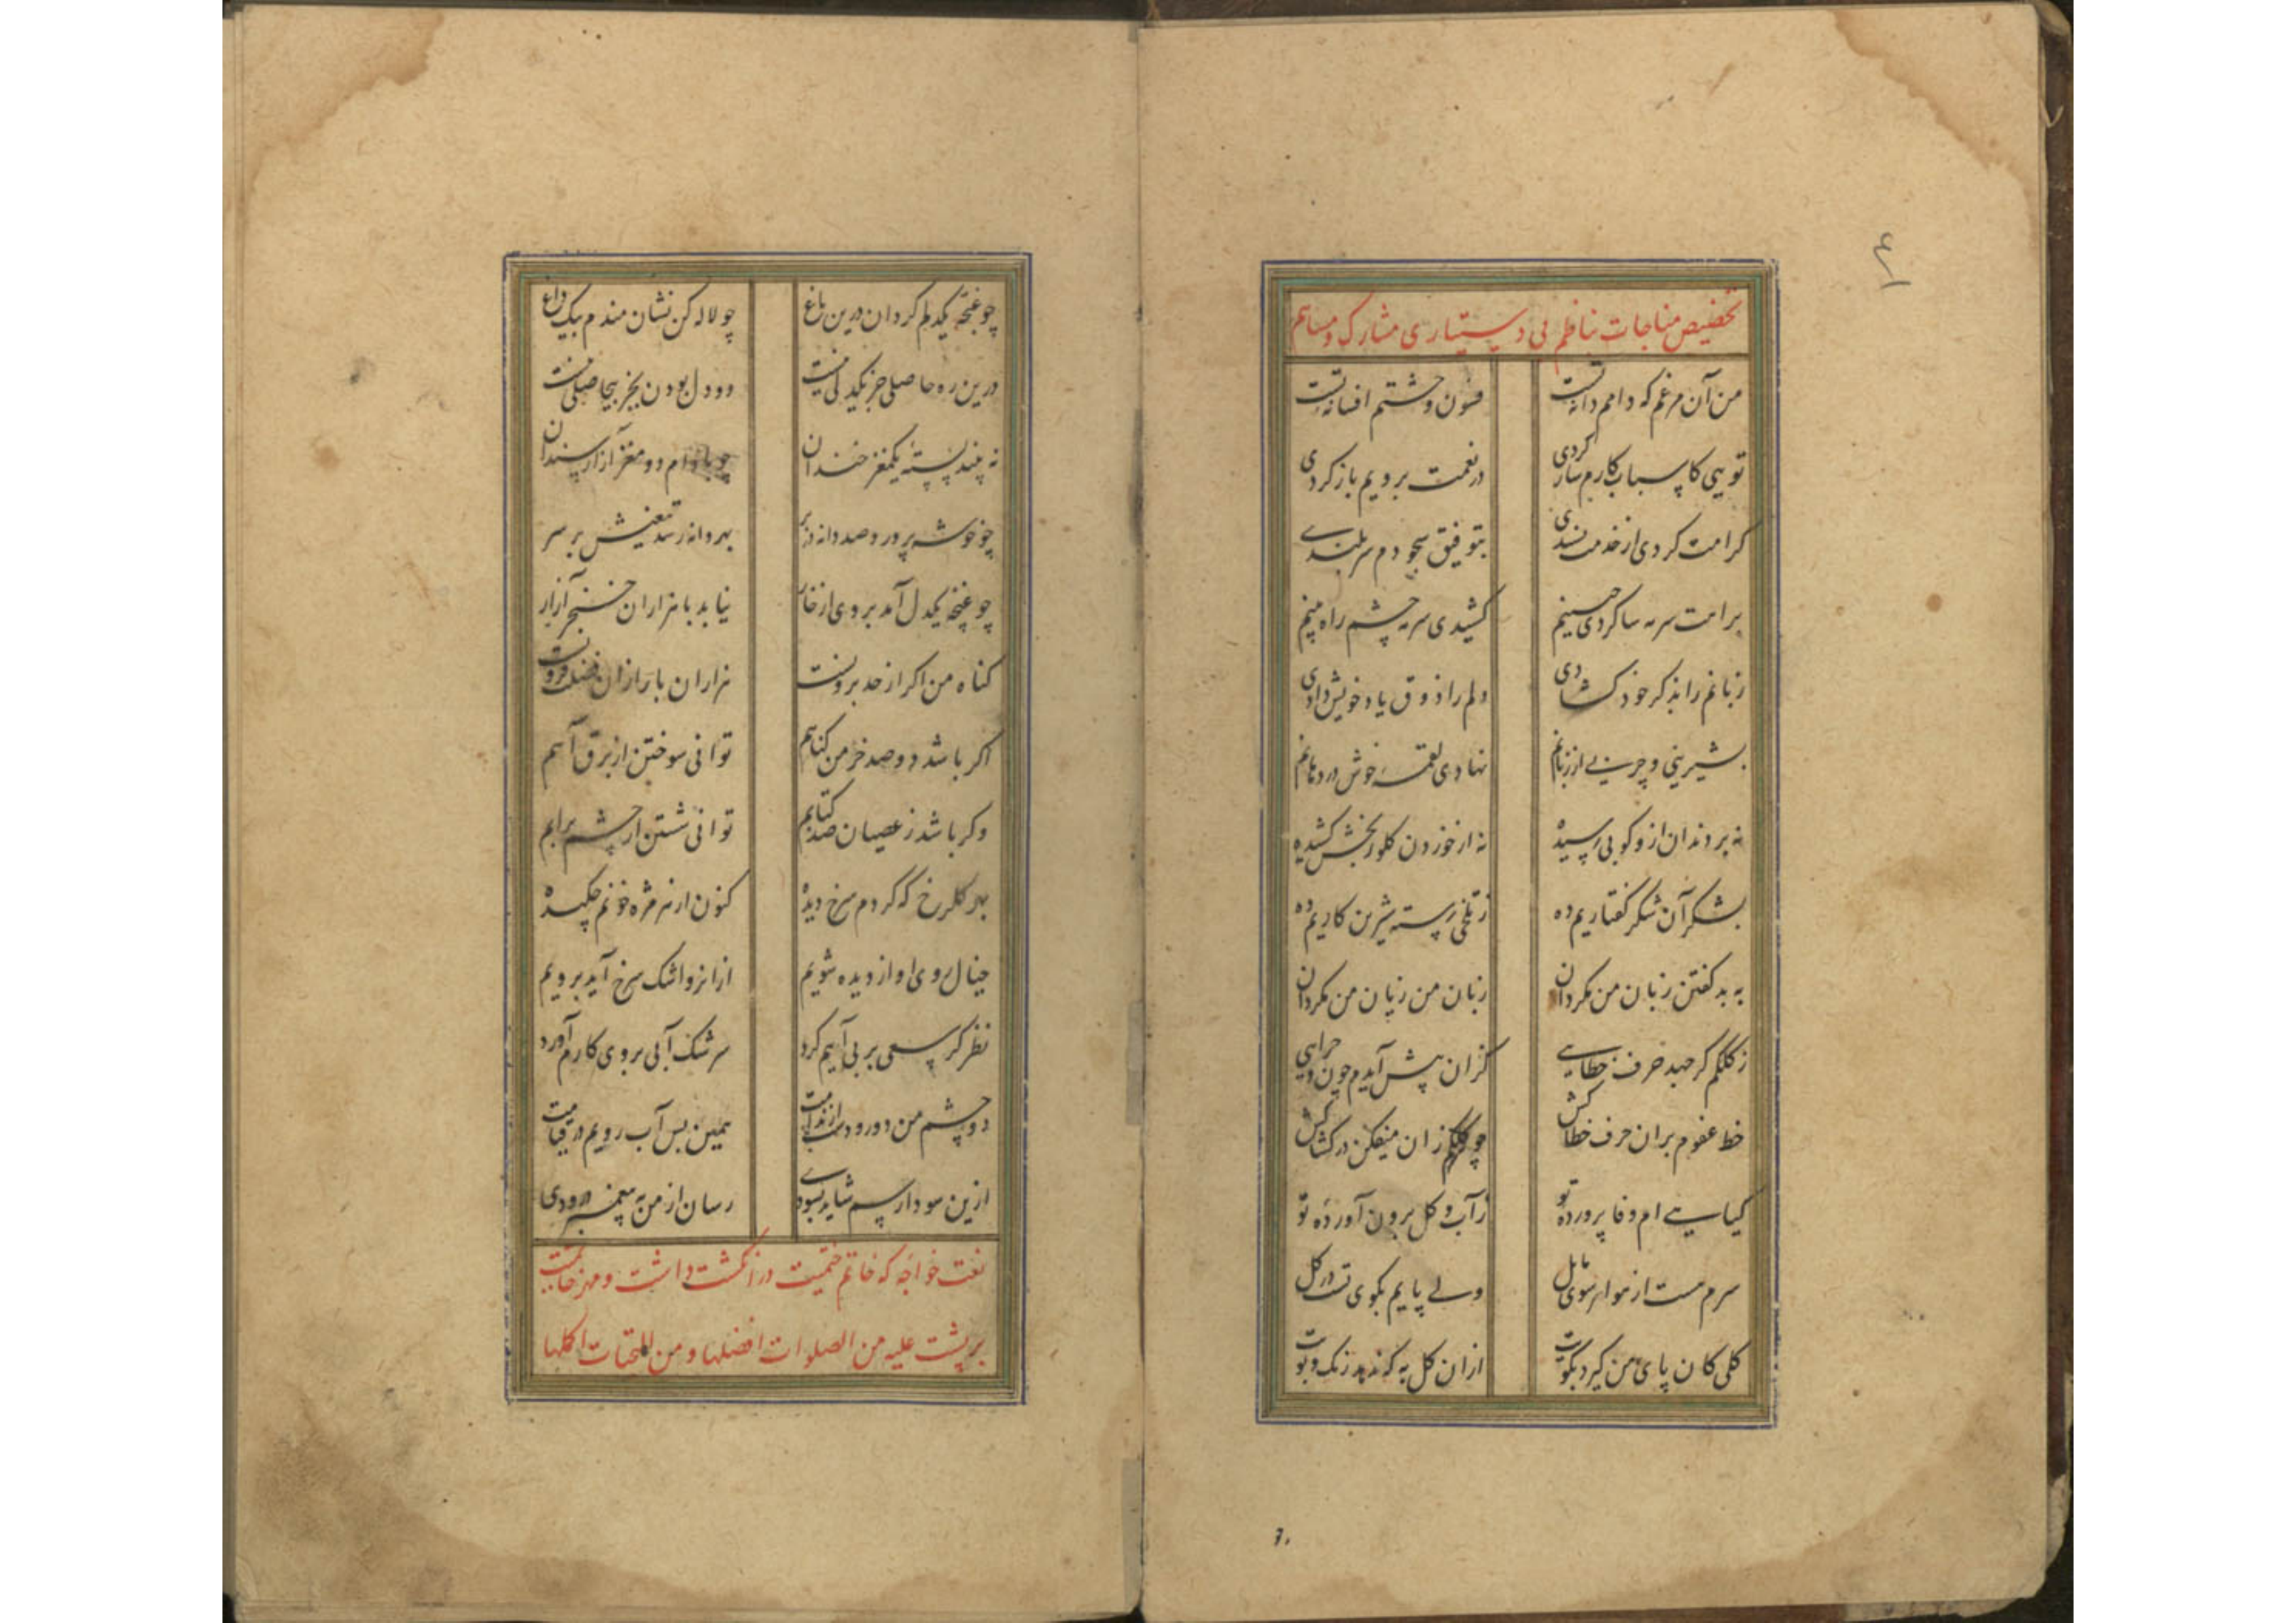 ۶
تخصیص مناجات بناظم بی دستیاری مشارک و مساهم
من آن مرغم که دامم دانه تست فسون وحشتم افسانه تست
تویی کاسباب کارم ساز کردی در نعمت برویم باز کردی
کرامت کردی از خدمت پسندی بتوفیق سجودم سربلندی
براهت سرمه سا کردی جبینم کشیدی سرمه چشم راه بینم
زبانم را بذکر خود کشادی دلم را ذوق یاد خویش دادی
بشیرینی و چربی از زبانم نهادی لقمه خوش در دهانم
نه بر دندان ازو کوبی رسیده نه از خوردن کلو رنجش کشیده
بشکر آن شکر کفتاریم ده ز تلخی رسته شیرین کاریم ده
به بد کفتن زبان من مکردان زبان من زیان من مکردان
ز کلکم کر جهد حرف خطایی کزان پیش آیدم چون و چرایی
خط عفوم بران حرف خطا کش چو کلکم زان میفکن در کشاکش
کیاهی ام وفا پرورده تو ز آب و کل برون آورده تو
سرم مست از هوا هر سوی مایل ولی پایم بکوی تست در کل
کلی کان پای من کیرد بکویت ازان کل به که ندهد رنک و بویت
۶۰
چو غنچه یکدلم کردان درین باغ چو لاله کن نشان مندم بیک داغ
درین ره حاصلی جز یکدلی نیست دو دل بودن بجز بیحاصلی نیست
نه بیند پسته یکمغز خندان چو بادام دو مغز آزار سندان
چو خوشه پرورد صد دانه در بر بهر دانه رسد تیغیش بر سر
چو غنچه یکدل آمد بروی از خار نیاید با هزاران خنجر آزار
کناه من اکر از حد برونست هزاران بار ازان فضلت فزونست
اکر باشد دو صد خرمن کناهم توانی سوختن از برق آهم
وکر باشد ز عصیان صد کتابم توانی شستن از چشم پرابم
بهر کلرخ که کردم سرخ دیده کنون از هر مژه خونم چکیده
خیال روی او از دیده شویم ازانرو اشک سرخ آید برویم
نظر کر سعی بر بی آبیم کرد سرشک آبی بروی کارم آورد
دو چشم من دو رود است از ندامت همین بس آب رویم در قیامت
ازین سودا رسم شاید بسودی رسان از من به پیغمبر درودی
نعت خواجه که خاتم ختمیت در انکشت داشت و مهر خاتمیت
بر پشت علیه من الصلوات افضلها و من التحیات اکملها